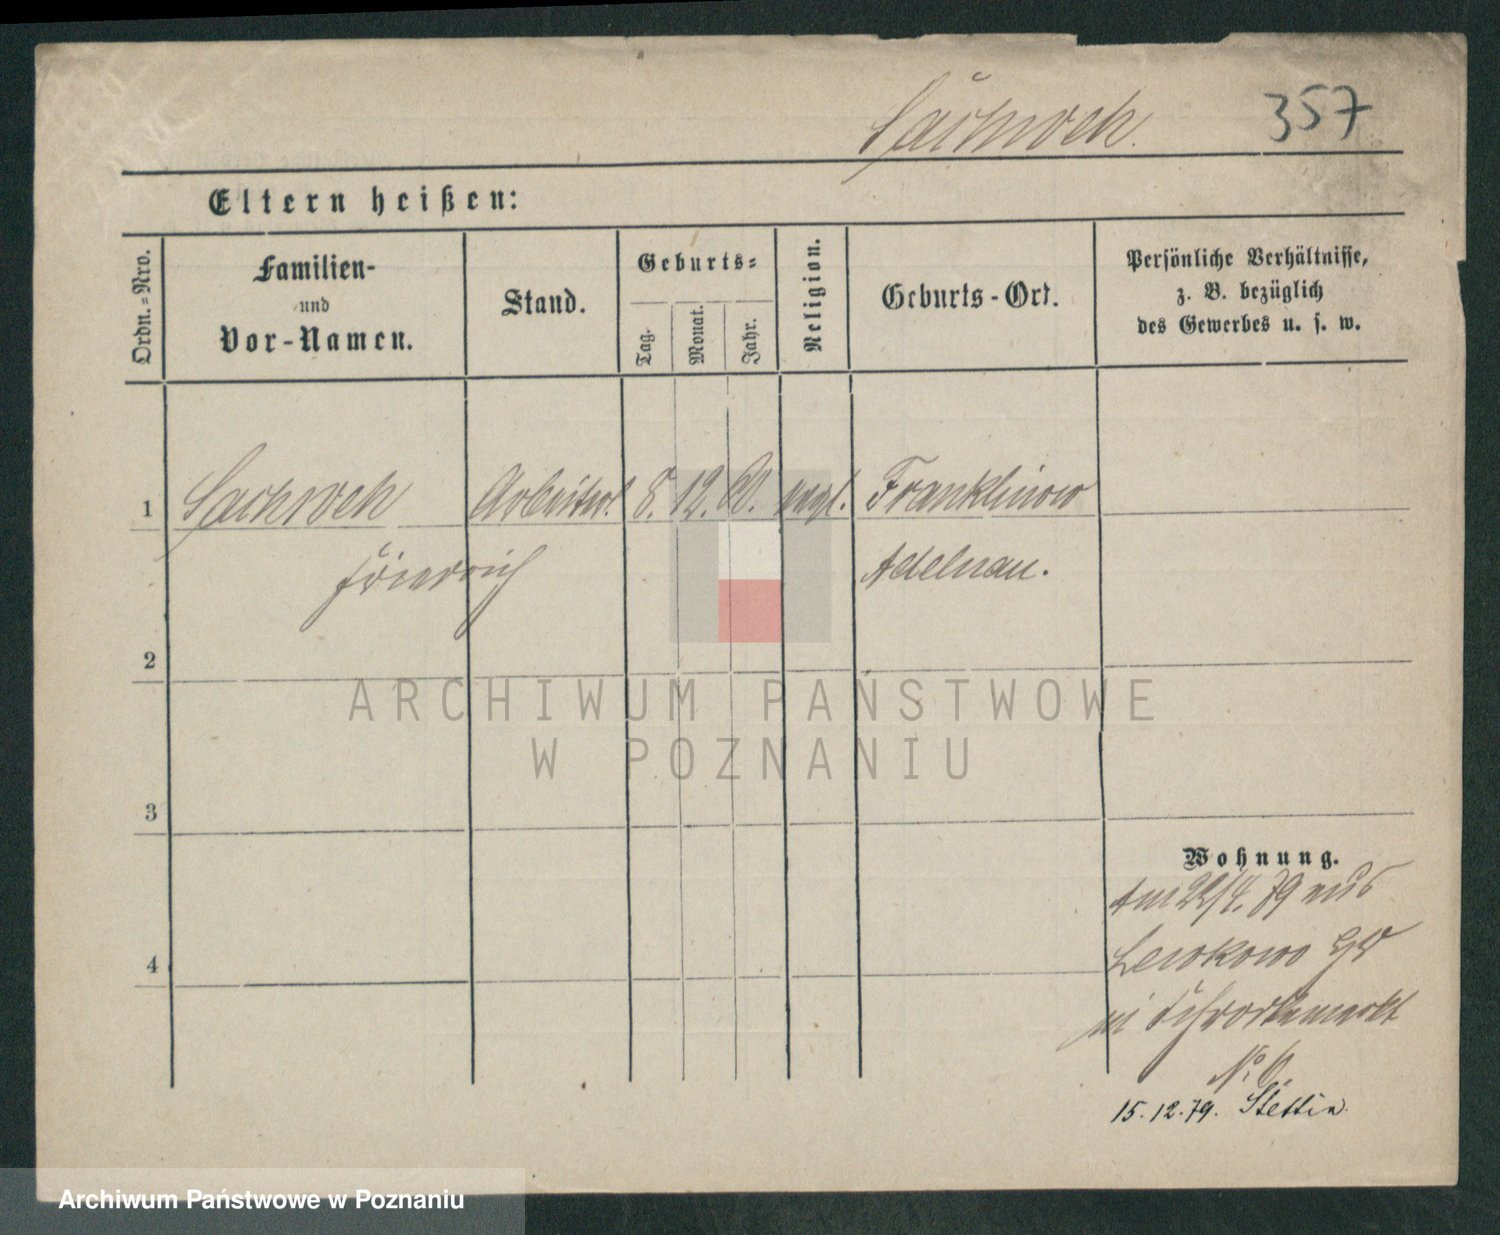 Sachweh.
357
Eltern heißen:
Ordn.-Nro.
Familien-
und
Vor-Namen.
Stand.
Geburts-
Tag.
Monat.
Jahr.
Religion.
Geburts-Ort.
Persönliche Verhältnisse,
z. B. bezüglich
des Gewerbes u. s. w.
1 Sachweh Arbeiter 8. 12. 60. evgl. Franklinow
Friedrich Adelnau.
2
3
4
ARCHIWUM PAŃSTWOWE
W POZNANIU
Wohnung.
Am 22/4. 79 aus
Lewkowo
in
No 6.
15.12.79. Stettin
Archiwum Państwowe w Poznaniu